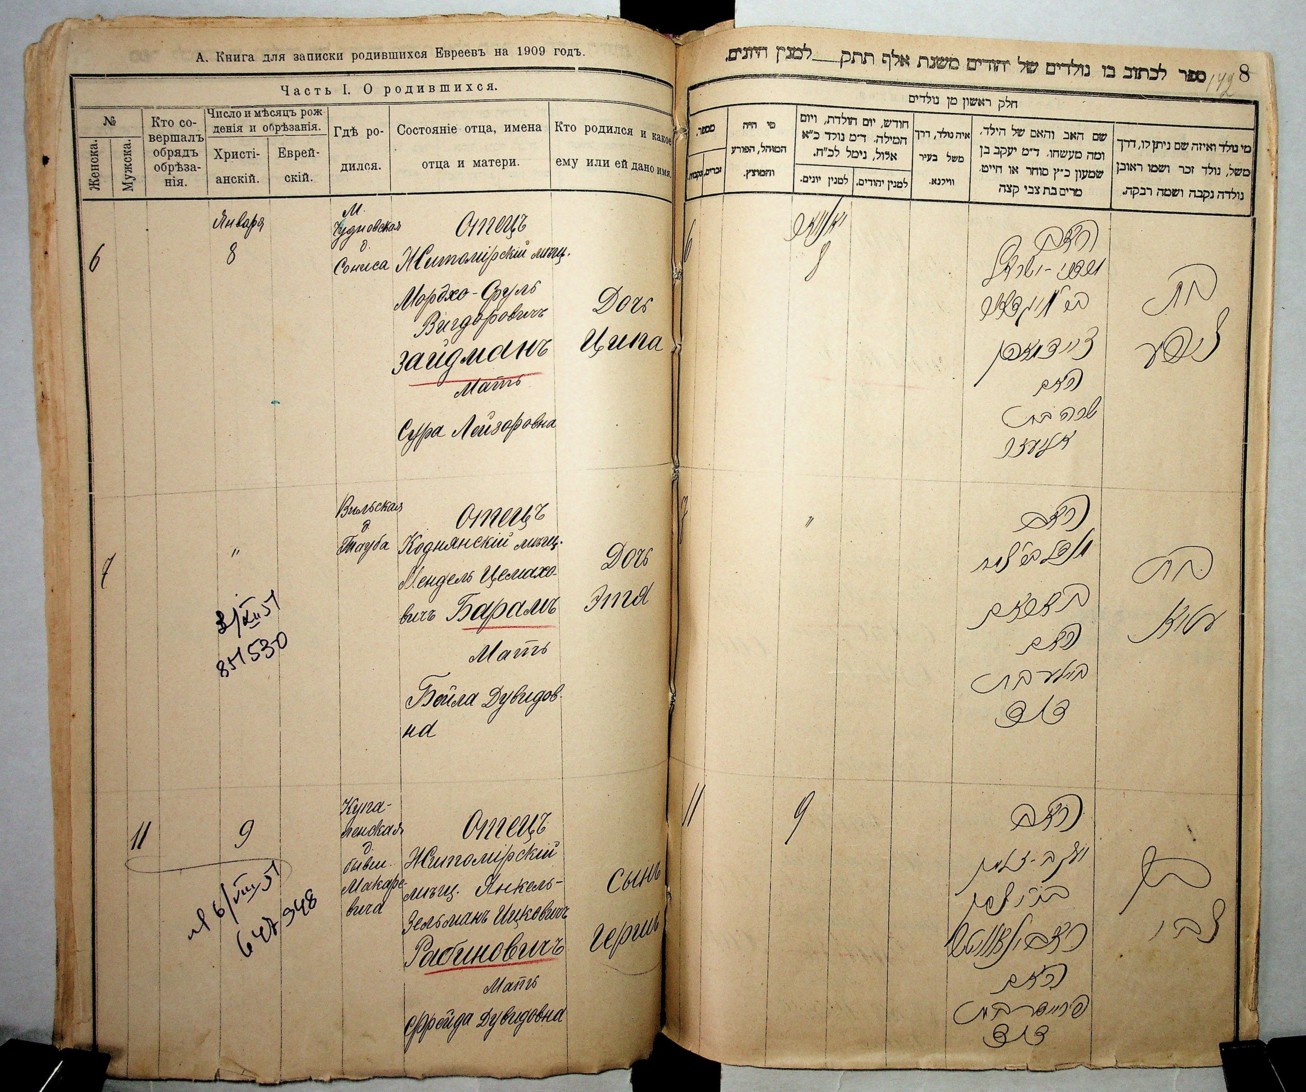 А. Книга для записки родившихся Евреевъ на 1909 годъ.
Часть I. О родившихся.
№
Женска.
Мужска.
Кто со-
вершалъ
обрядъ
обрѣза-
нія.
Число и мѣсяцъ рож
денія и обрѣзанія.
Христі-
анскій.
Еврей-
скій.
Гдѣ ро-
дился.
Состояніе отца, имена
отца и матери.
Кто родился и какое
ему или ей дано имя.
6
Января
8
М.
Чудновская
д.
Сониса
Отецъ
Житомірскій мѣщ.
Мордхо-Сруль
Вигдоровичъ
Зайдманъ
Мать
Сура Лейзоровна
Дочь
Ципа
7
"
Вильская
д.
Тауба
Отецъ
Коднянскій мѣщ.
Мендель Цемахо-
вичъ Барамъ
Мать
Бейла Дувидов-
на
Дочь
Этя
851530
11
9
д.
бывш.
Макаре-
вича
Отецъ
Житомірскій
мѣщ. Янкель-
Зельманъ Ицковичъ
Рабиновичъ
Мать
Фрейда Дувидовна
Сынъ
Гершъ
647948
ספר לכתוב בו נולדים של יהודים משנת אלף תתק למנין היונים.
142
8
חלק ראשון מן נולדים
מספר.
זכרים.
נקבות.
מי היה
המוהל, הפורע
והמוצץ.
חודש, יום הולדת, ויום
המילה. ד״מ נולד כ״א
אלול, נימל לכ״ח.
למנין יונים.
למנין יהודים.
איה נולד, דרך
משל בעיר
ווילנא.
שם האב והאם של הילד,
ומה מעשהו. ד״מ יעקב בן
שמעון כ״ץ סוחר או חייט.
מרים בת צבי קצה
מי נולד ואיזה שם ניתן לו, דרך
משל, נולד זכר ושמו ראובן
נולדה נקבה ושמה רבקה.
6
יאנואר
8
האב
האם
שרה בת
אליעזר
בת
ציפע
7
"
האב
האם
ביילע בת
דוד
בת
עטיא
11
9
האב
האם
פריידע בת
דוד
בן
צבי